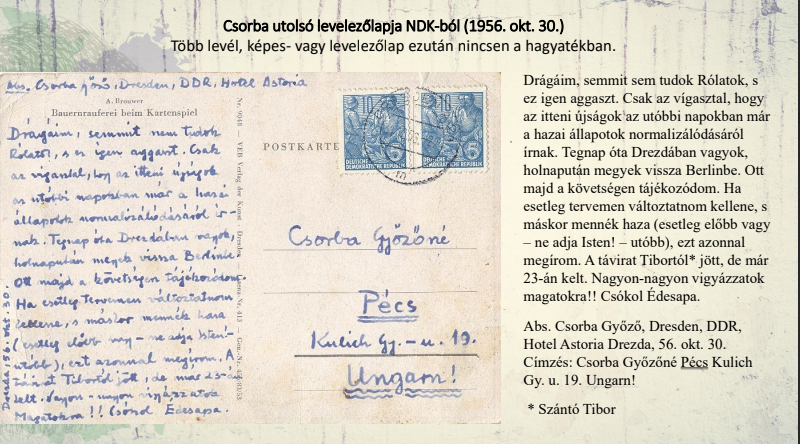 Csorba utolsó levelezőlapja NDK-ból (1956. okt. 30.)
Több levél, képes- vagy levelezőlap ezután nincsen a hagyatékban.
Abs. Csorba Győző, Dresden, DDR, Hotel Astoria
A. Brouwer
Bauernrauferei beim Kartenspiel
Drágáim, semmit nem tudok
Rólatok, s ez igen aggaszt. Csak
az vigasztal, hogy az itteni újságok
az utóbbi napokban már a hazai
állapotok normalizálódásáról ír-
nak. Tegnap óta Drezdában vagyok,
holnapután megyek vissza Berlinbe.
Ott majd a követségen tájékozódom.
Ha esetleg tervemen változtatnom
kellene, s máskor mennék haza
(esetleg előbb vagy – ne adja Isten! –
utóbb), ezt azonnal megírom. A
távirat Tibortól jött, de már 23-án
kelt. Nagyon-nagyon vigyázzatok
Magatokra!! Csókol Édesapa.
Drezda, 56. okt. 30.
VEB Verlag der Kunst Dresden
POSTKARTE
10
DEUTSCHE
DEMOKRATISCHE
REPUBLIK
5
10
DEUTSCHE
DEMOKRATISCHE
REPUBLIK
5
Csorba Győzőné
Pécs
Kulich Gy. - u. 19.
Ungarn!
Drágáim, semmit sem tudok Rólatok, s
ez igen aggaszt. Csak az vígasztal, hogy
az itteni újságok az utóbbi napokban már
a hazai állapotok normalizálódásáról
írnak. Tegnap óta Drezdában vagyok,
holnapután megyek vissza Berlinbe. Ott
majd a követségen tájékozódom. Ha
esetleg tervemen változtatnom kellene, s
máskor mennék haza (esetleg előbb vagy
– ne adja Isten! – utóbb), ezt azonnal
megírom. A távirat Tibortól* jött, de már
23-án kelt. Nagyon-nagyon vigyázzatok
magatokra!! Csókol Édesapa.
Abs. Csorba Győző, Dresden, DDR,
Hotel Astoria Drezda, 56. okt. 30.
Címzés: Csorba Győzőné Pécs Kulich
Gy. u. 19. Ungarn!
* Szántó Tibor